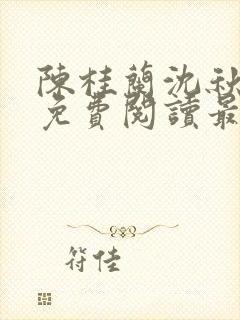 陳桂蘭沈秋
免費閱讀最
符佳